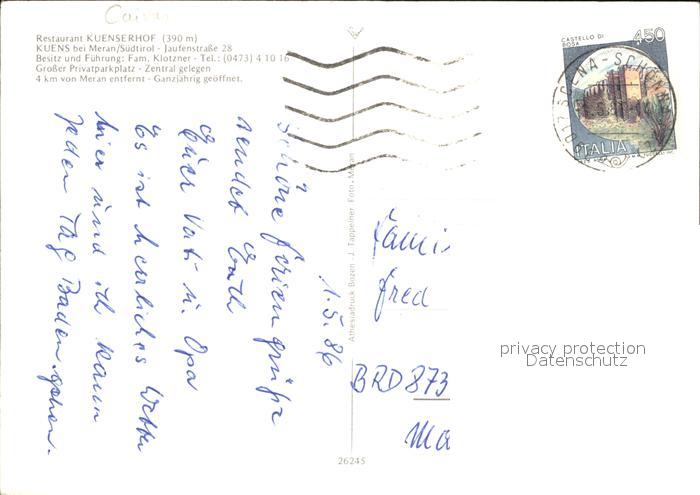 Restaurant KUENSERHOF (390 m)
KUENS bei Meran/Südtirol - Jaufenstraße 28
Besitz und Führung: Fam. Klotzner - Tel.: (0473) 4 10 16
Großer Privatparkplatz - Zentral gelegen
4 km von Meran entfernt - Ganzjährig geöffnet.
1.5.86
Schöne Feriengrüße
sendet Euch
Euer Vati u. Opa
Es ist herrliches Wetter
hier und ich kann
jeden Tag Baden gehen.
Athesiadruck Bozen - J. Tappeiner Foto, Meran
26245
CASTELLO DI
BOSA
450
ITALIA
SCENA - SCHENNA
Fami
Fred
BRD 873
Ma
privacy protection
Datenschutz